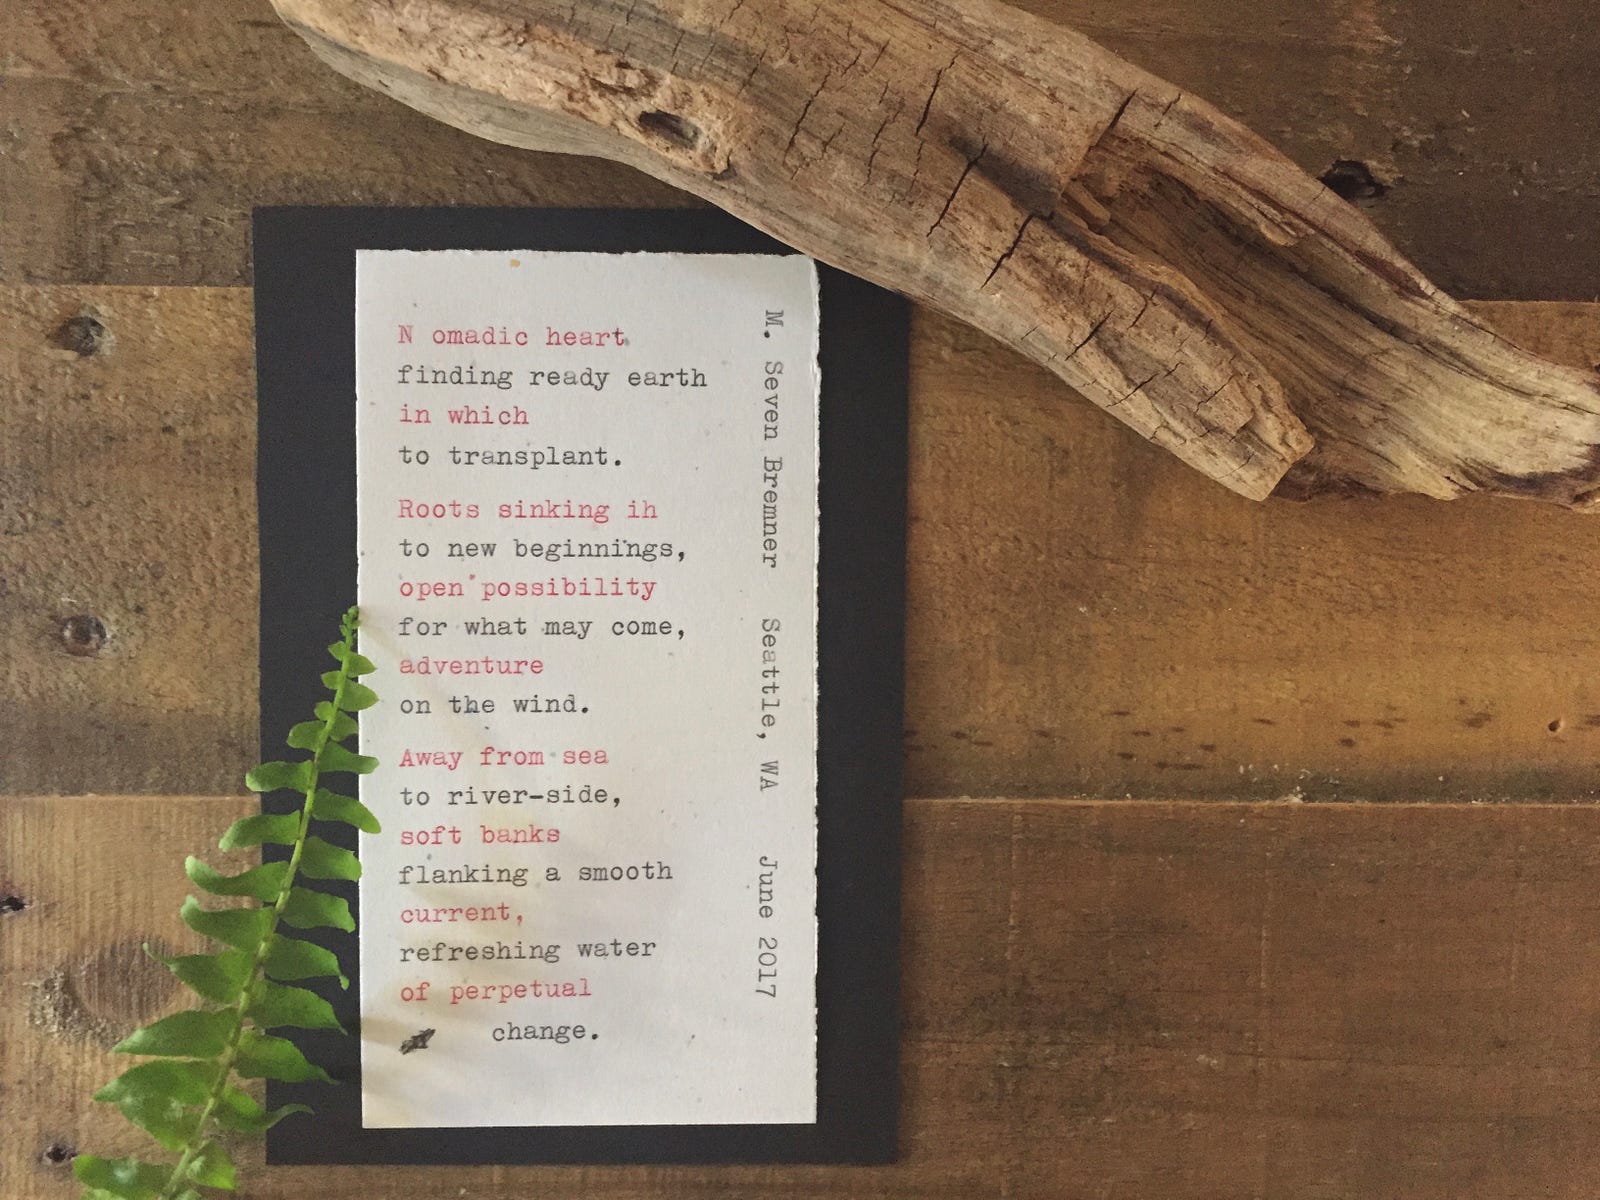 N omadic heart
finding ready earth
in which
to transplant.
Roots sinking ih
to new beginnings,
open possibility
for what may come,
adventure
on the wind.
Away from sea
to river-side,
soft banks
flanking a smooth
current,
refreshing water
of perpetual
change.
M. Seven Bremner Seattle, WA June 2017